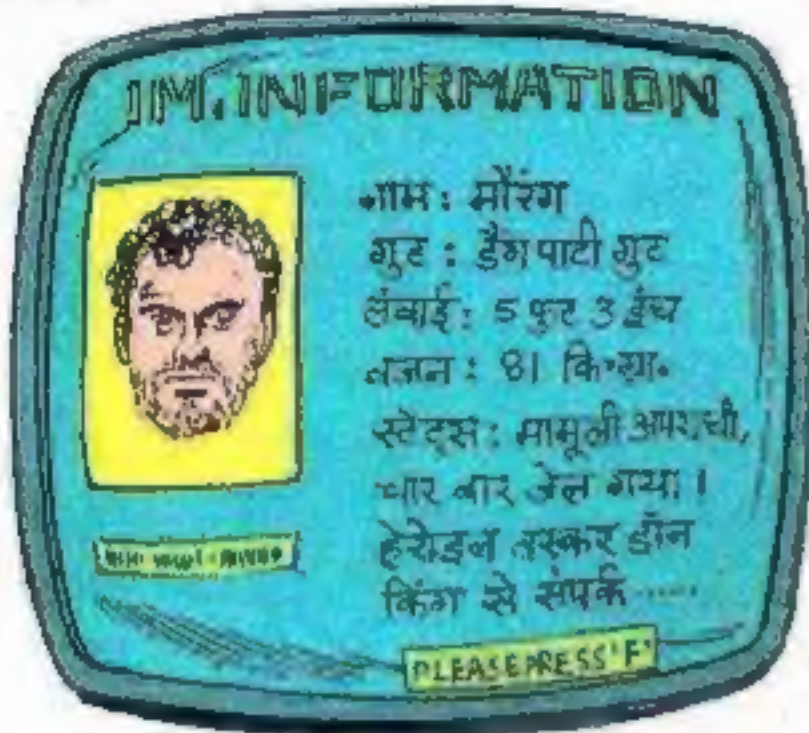 IM.INFORMATION
नाम : मौरंग
गुट : डैगपाटी गुट
लंबाई: 5 फुट 3 इंच
वजन : 81 कि.ग्रा.
स्टेट्स: मामूली अपराधी,
चार बार जेल गया।
हेरोइन तस्कर डॉन
किंग से संपर्क ......
PLEASE PRESS 'F'